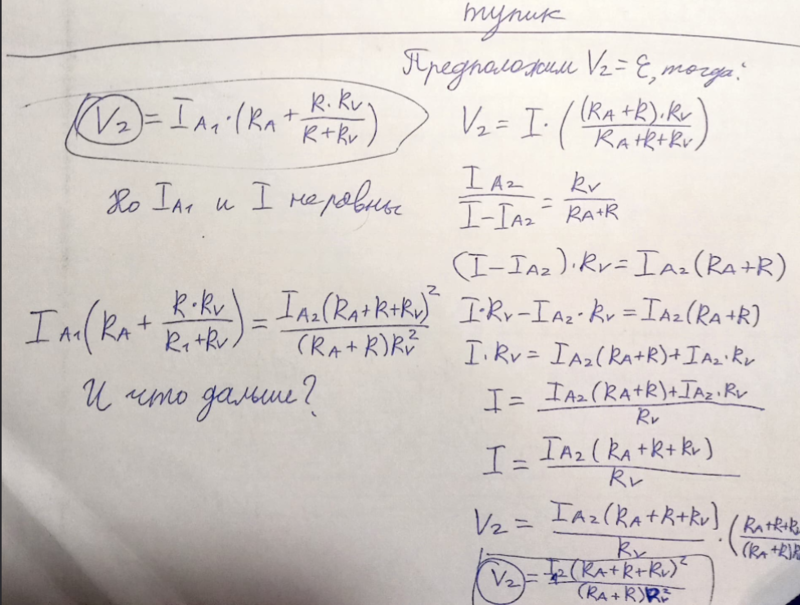 тупик
V₂ = I_A₁·(R_A + R·R_V/(R+R_V))
Но I_A₁ и I не равны
I_A₁(R_A + R·R_V/(R₁+R_V)) = I_A₂(R_A+R+R_V)²/((R_A+R)R_V²)
И что дальше?
Предположим V₂ = Ɛ, тогда:
V₂ = I·((R_A+R)·R_V/(R_A+R+R_V))
I_A₂/(I−I_A₂) = R_V/(R_A+R)
(I−I_A₂)·R_V = I_A₂(R_A+R)
I·R_V−I_A₂·R_V = I_A₂(R_A+R)
I·R_V = I_A₂(R_A+R)+I_A₂·R_V
I = (I_A₂(R_A+R)+I_A₂·R_V)/R_V
I = I_A₂(R_A+R+R_V)/R_V
V₂ = I_A₂(R_A+R+R_V)/R_V·(R_A+R+R_V/(R_A+R)R
V₂ = I₂(R_A+R+R_V)²/((R_A+R)R_V²)